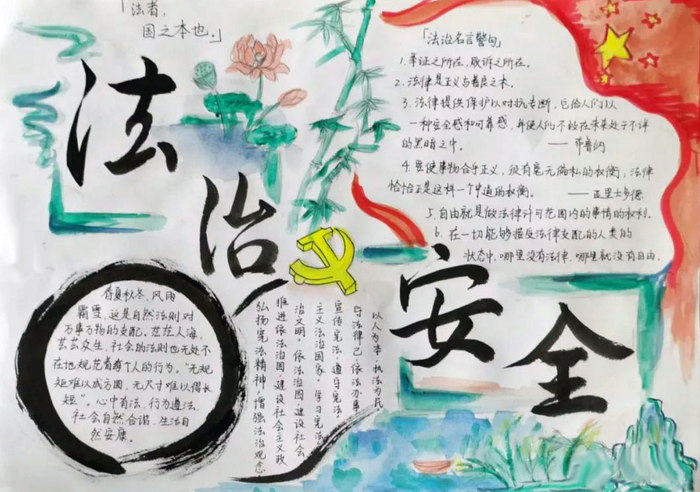 「法者，
国之本也。」
法
治
安
全
「法治名言警句」
1. 举证之所在，败诉之所在。
2. 法律是正义与善良之本。
3. 法律提供保护以对抗专断，它给人们以
一种安全感和可靠感，并使人们不致在未来处于不详
的黑暗之中。 —— 布鲁纳
4. 要使事物合乎正义，须有毫无偏私的权衡；法律
恰恰正是这样一个中道的权衡。 —— 亚里士多德
5. 自由就是做法律许可范围内的事情的权利。
6. 在一切能够接受法律支配的人类的
状态中，哪里没有法律，哪里就没有自由。
春夏秋冬、风雨
霜雪，这是自然法则对
万事万物的支配。茫茫人海，
芸芸众生，社会的法则也无处不
在地规范着每个人的行为。“无规
矩难以成方圆，无尺寸难以得长
短”。心中有法，行为遵法，
社会自然合谐，生活自
然安康。
以人为本，执法为民
守法律己，依法办事
宣传宪法，遵守宪法
主义法治国家。学习宪法
治文明。依法治国，建设社会
推进依法治国，建设社会主义政
弘扬宪法精神，增强法治观念